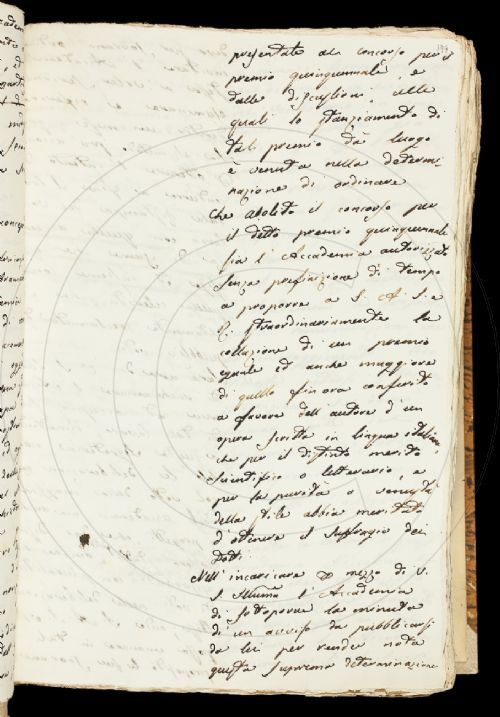 presentate al concorso pel
premio quinquennale, e
dalle discussioni, alle
quali lo stanziamento di
tali premio dà luogo
è venuta nella determi-
nazione di ordinare
Che abolito il concorso per
il detto premio quinquennale
sia l'Accademia autorizzata
senza prefinizione di tempo
a proporre a S. A. I. e
R. straordinariamente la
collazione di un premio
eguale ed anche maggiore
di quello finora conferito
a favore dell'autore d'un
opera scritta in lingua italiana,
che per il distinto merito
scientifico o letterario, e
per la purità o venustà
dello stile abbia meritato
d'ottenere il suffragio dei
Dotti.
Nell'incaricare per mezzo di V.
S. Illuma l'Accademia
di sottoporre la minuta
di un avviso da pubblicarsi
da lei per render nota
questa suprema determinazione